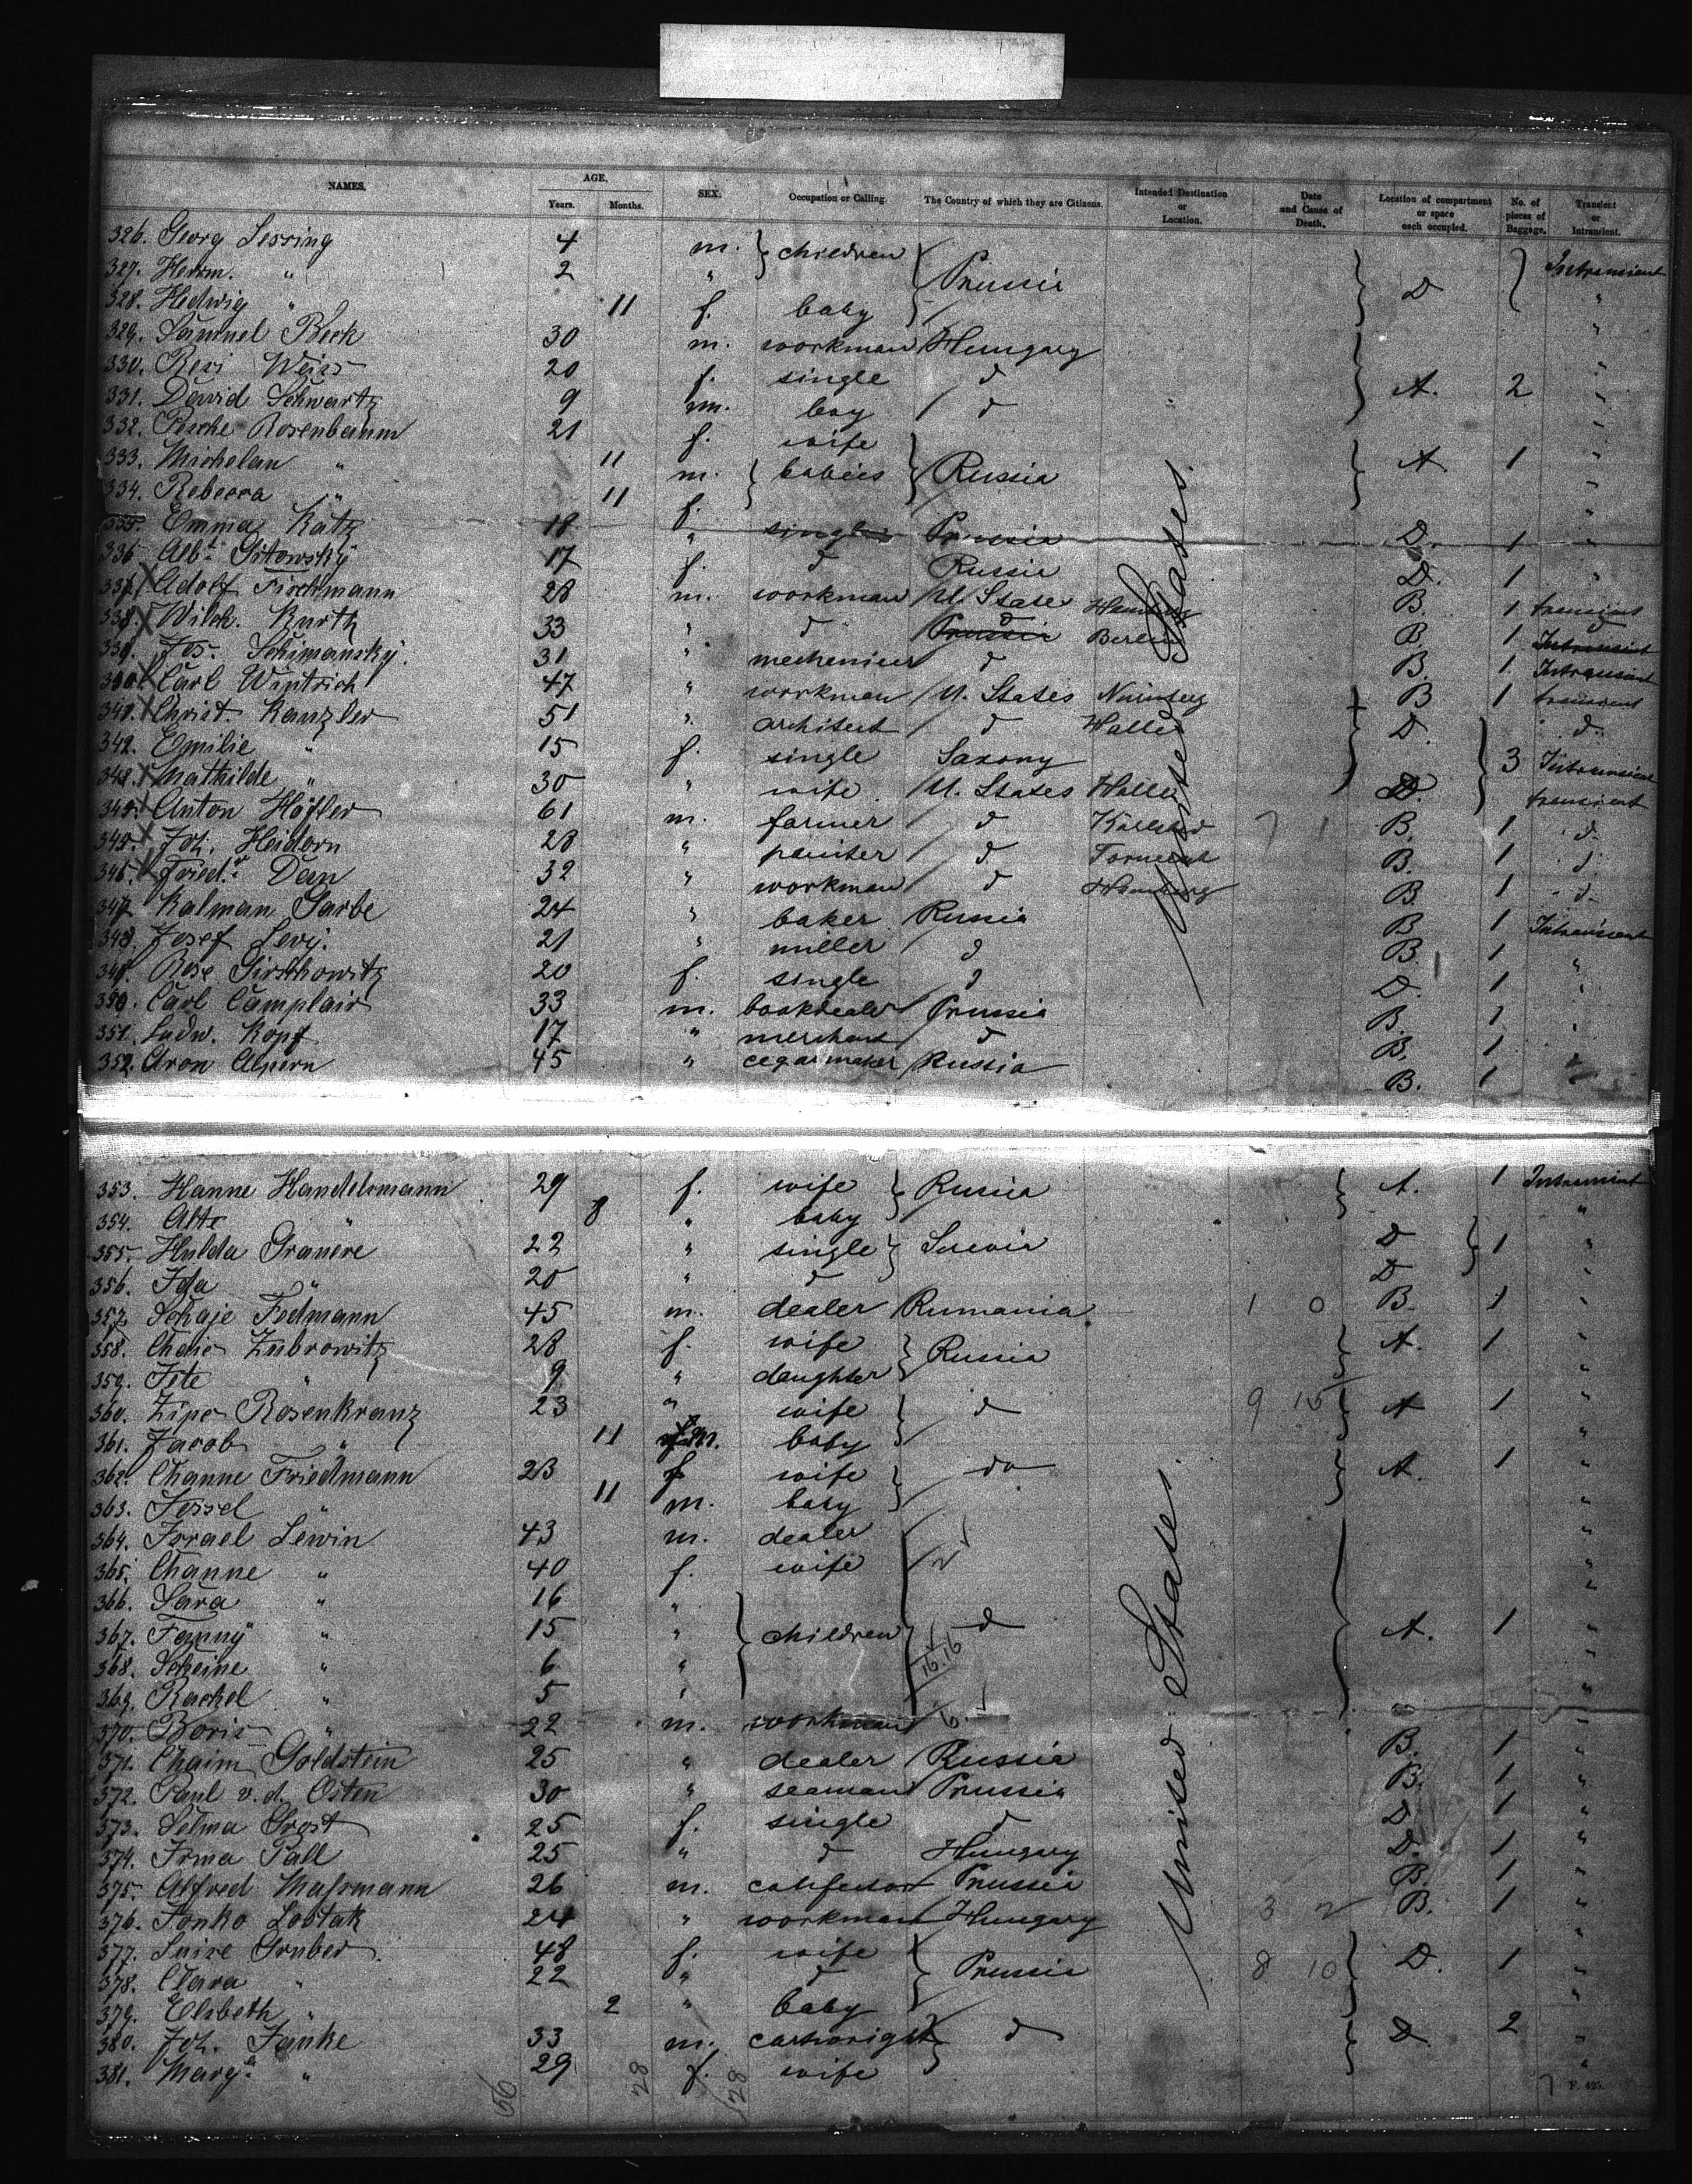 NAMES. AGE. Years. Months. SEX. Occupation or Calling. The Country of which they are Citizens. Intended Destination or Location. Date and Cause of Death. Location of compartment or space each occupied. No. of pieces of Baggage. Transient or Intransient.
326. Georg Lessing 4 m. children Prussia D Intransient
327. Herm. " 2 " "
328. Hedwig " 11 f. baby "
329. Samuel Beck 30 m. workman Hungary "
330. Resi Weiss 20 f. single d A. 2 "
331. David Schwartz 9 m. boy d "
332. Rosenbaum 21 f. wife Russia A 1 "
333. " 11 m. babies "
334. Rebecca " 11 f. "
335. Emma Katz 18 " single Prussia D. 1 "
336. Alb. 17 f. d Russia D. 1 "
337. Adolf Fischmann 28 m. workman U. States Hamburg B. 1 transient
338. Wilh. Kurth 33 " d Prussia Berlin B 1 Intransient
339. Jos. Schimansky. 31 " d B. 1 Intransient
340. Carl Wintrich 47 " workman U. States Nürnberg B 1 transient
341. Christ. Kanzler 51 " architect d Halle D. 3 d.
342. Emilie " 15 f. single Saxony Intransient
343. Mathilde " 30 " wife U. States Halle D. transient
344. Anton Höfler 61 m. farmer d 7 1 B. 1 d.
345. Joh. Heidorn 28 " painter d B. 1 d.
346. Fried. 32 " workman d Hamburg B. 1 d.
347. Kalman Garbe 24 " baker Russia B 1 Intransient
348. Josef Levy. 21 " miller d B. 1 "
349. Rose 20 f. single d D. 1 "
350. Carl Camplair 33 m. bookdealer Prussia B. 1 "
351. Ludw. Kopf 17 " merchant d B. 1
352. Aron Alpern 45 " cegarmaker Russia B. 1 "
United States.
353. Hanne Handelsmann 29 f. wife Russia A. 1 Intransient
354. Alte " 8 " baby "
355. Hulda 22 " single D 1 "
356. Ida " 20 " d D "
357. Schaje Fedmann 45 m. dealer Rumania 1 0 B. 1 "
358. Zubrowitz 28 f. wife Russia A. 1 "
359. Jte " 9 " daughter "
360. Zipe Rosenkranz 23 " wife d 9 15 A 1 "
361. Jacob " 11 m. baby "
362. Channe Friedmann 23 f wife do A. 1 "
363. Jessel " 11 m. baby "
364. Israel Lewin 43 m. dealer d A. 1 "
365. Channe " 40 f. wife "
366. Sara " 16 " children "
367. Fanny " 15 " "
368. Scheine " 6 " "
369. Rachel " 5 " "
370. Boris " 22 m. workman "
371. Chaim Goldstein 25 " dealer Russia B. 1 "
372. Paul v. d. Osten 30 " seaman Prussia B. 1 "
373. Selma 25 f. single d D. 1 "
374. Irma Pall 25 " d Hungary D. 1 "
375. Alfred Massmann 26 m. Prussia B. 1 "
376. Janko Lobtak 24 " workman Hungary 3 2 B. 1 "
377. Luise Gruber 48 f. wife Prussia 8 10 D. 1 "
378. Clara " 22 " d "
379. Elsbeth " 2 " baby "
380. Joh. Janke 33 m. cartwright d D. 2 "
381. Marg. " 29 f. wife "
United States.
56 28 128 F. 425.